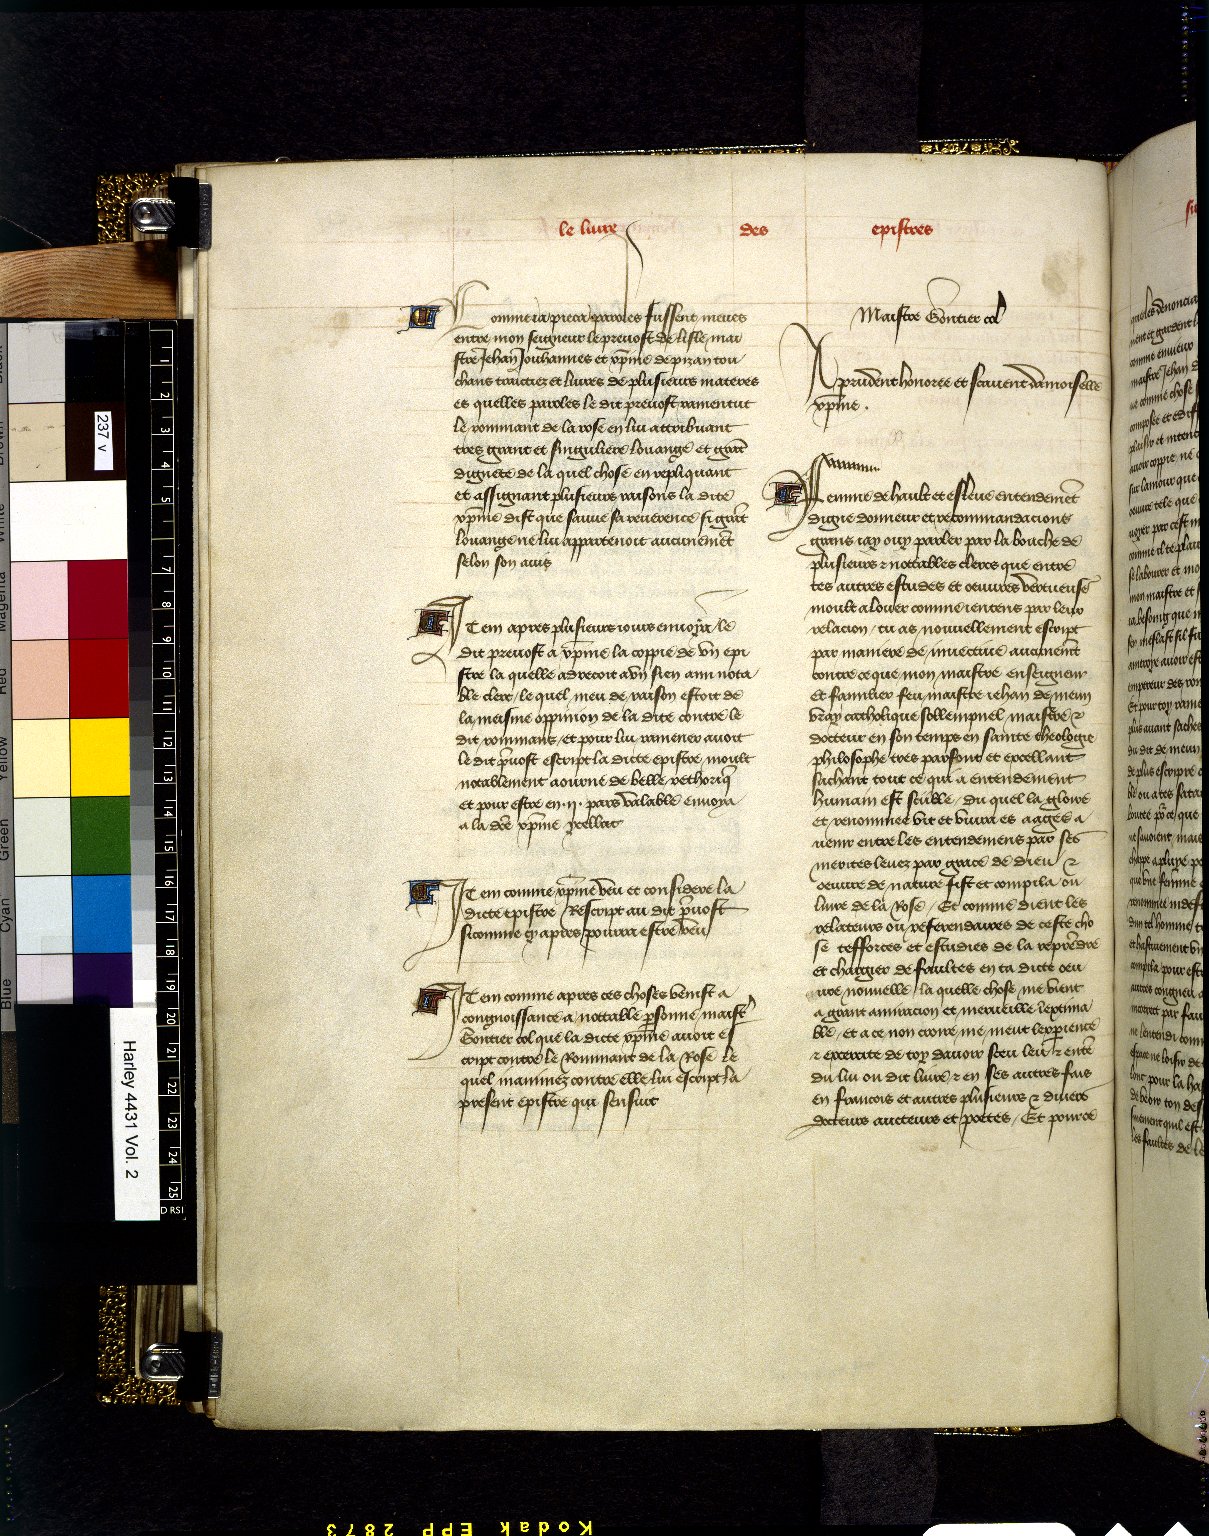 le livre des epistres
Comme ja pieca paroles fussent meues
entre mon seigneur le prevost de lisle mai
stre Jehan Jouhannes et xpine de pizan tou
chans traictiez et livres de plusieurs materes
es quelles paroles le dit prevost ramentut
le rommant de la rose en lui attribuant
tres grant et singuliere louange et grāt
dignete de la quel chose en repliquant
et assignant plusieurs raisons la dite
xpine dist que sauve sa reverence si grāt
louange ne lui appartenoit aucunemēt
selon son avis
ITem apres plusieurs jours envoya le
dit prevost a xpine la coppie de un epi
stre la quelle adrecoit a un sien ami nota
ble clerc / le quel meu de raison estoit de
la meisme oppinion de la dite contre le
dit rommans / et pour lui ramener avoit
le dit prevost escript la dicte epistre moult
notablement aourne de belle rethoriq
et pour estre en .ii. pars valable envoya
a la dite xpine ycelle
ITem comme xpine veu et considere la
dicte epistre / Rescript au dit prevost
si comme cy apres pourra estre veu
ITem comme apres ces choses venist a
congnoissance a notable psonne maist
Gontier col que la dicte xpine avoit es
cript contre le Rommant de la Rose le
quel inanimez contre elle lui escript la
present epistre qui sensuit
Maistre Gontier col
A prudent honoree et scavent damoiselle
xpine .
Femme de hault et esleve entendemēt
digne donneur et recommandacions
grans jay ouy parler par la bouche de
plusieurs et notables clercs que entre
tes autres estudes et oeuvres vertueuses
moult a louer comme jentens par leur
relacion / tu as nouvellement escript
par maniere de invective aucunemēt
contre ce que mon maistre enseigneur
et familier feu maistre jehan de meun
vray catholique sollempnel maistre et
docteur en son temps en sainte theologie
philosophe tres parfont et excellant
sachant tout ce qui a entendement
humain est scible / du quel la gloire
et renommee vit et vivra es aages a
venir entre les entendemens par ses
merites levez par grace de dieu et
oeuvre de nature fist et compila ou
livre de la Rose / Et comme dient les
relateurs ou referendaires de ceste cho
se tefforces et estudies de le reprendre
et chargier de faultes en ta dicte oeu
vre nouvelle / la quelle chose me vient
a grant amiracion et merveille lextima
ble / et a ce non croire me meut lexperience
et excercite de toy davoir sceu leu et ente
du lui ou dit livre et en ses autres fais
en francois et autres plusieurs et divers
docteurs aucteurs et poetes / Et pource
237 v
Harley 4431 Vol. 2
Blue
Cyan
Green
Yellow
Red
Magenta
White
Brown
Black
1
2
3
4
5
6
7
8
9
10
11
12
13
14
15
16
17
18
19
20
21
22
23
24
25
Kodak EPP 2873